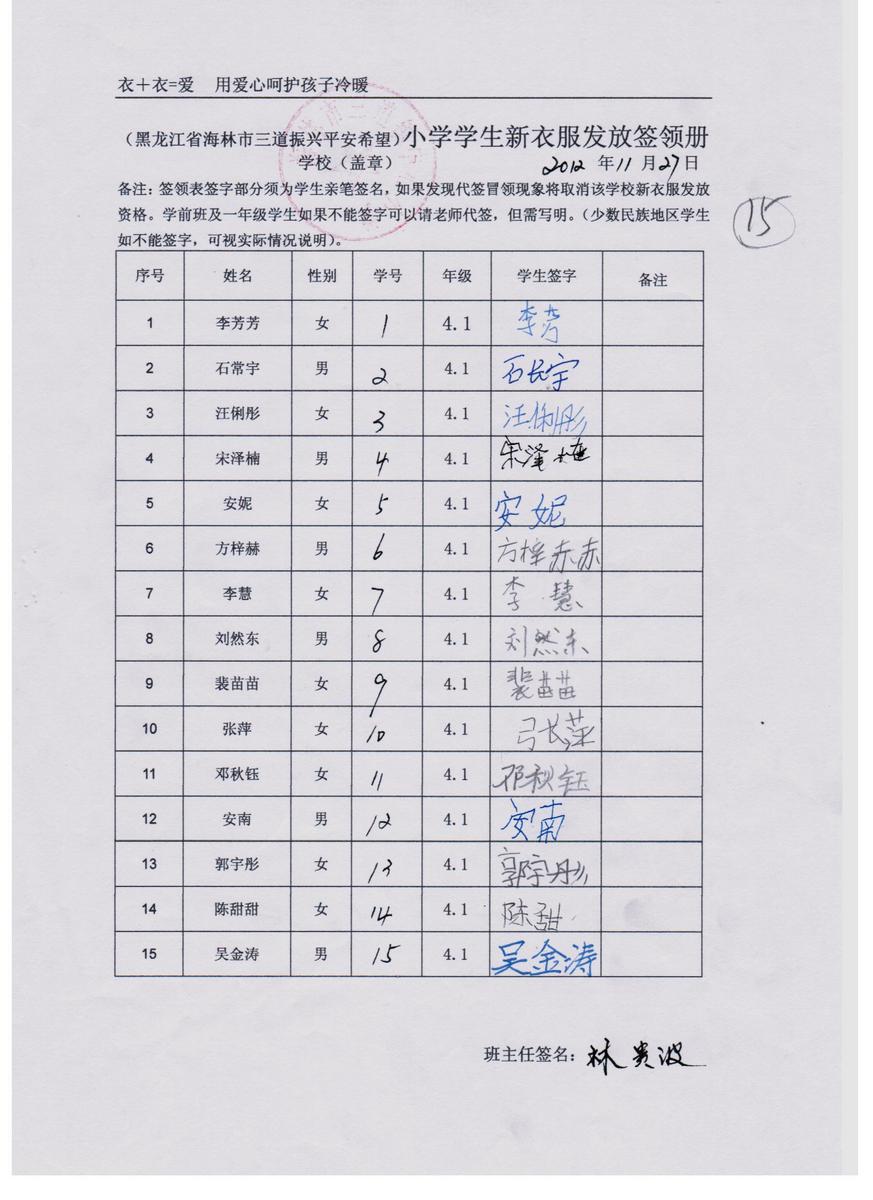 衣＋衣=爱 用爱心呵护孩子冷暖
（黑龙江省海林市三道振兴平安希望）小学学生新衣服发放签领册
学校（盖章） 2012 年 11 月 27 日
备注：签领表签字部分须为学生亲笔签名，如果发现代签冒领现象将取消该学校新衣服发放
资格。学前班及一年级学生如果不能签字可以请老师代签，但需写明。（少数民族地区学生
如不能签字，可视实际情况说明）。
15
序号 姓名 性别 学号 年级 学生签字 备注
1 李芳芳 女 1 4.1 李芳
2 石常宇 男 2 4.1 石长宇
3 汪俐彤 女 3 4.1 汪俐彤
4 宋泽楠 男 4 4.1 宋泽楠
5 安妮 女 5 4.1 安妮
6 方梓赫 男 6 4.1 方梓赫
7 李慧 女 7 4.1 李慧
8 刘然东 男 8 4.1 刘然东
9 裴苗苗 女 9 4.1 裴苗苗
10 张萍 女 10 4.1 张萍
11 邓秋钰 女 11 4.1 邓秋钰
12 安南 男 12 4.1 安南
13 郭宇彤 女 13 4.1 郭宇彤
14 陈甜甜 女 14 4.1 陈甜
15 吴金涛 男 15 4.1 吴金涛
班主任签名：林贵波